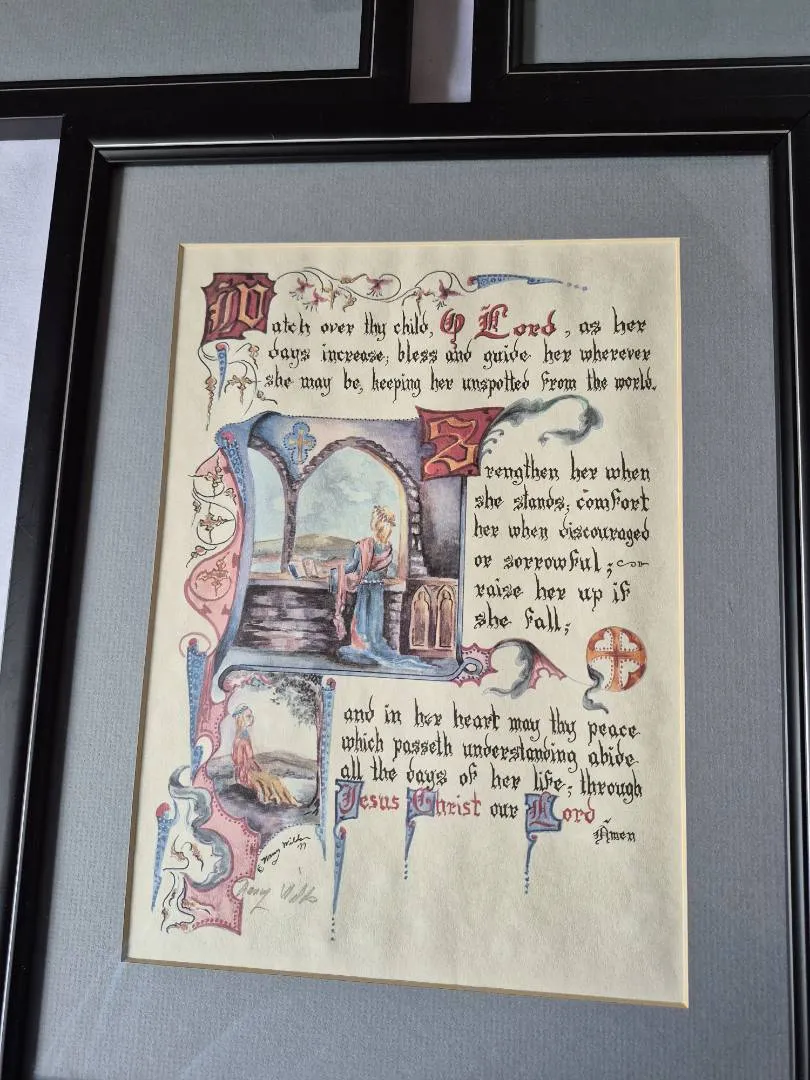 Watch over thy child, O Lord, as her
days increase; bless and guide her wherever
she may be, keeping her unspotted from the world.
Strengthen her when
she stands; comfort
her when discouraged
or sorrowful;
raise her up if
she fall;
and in her heart may thy peace
which passeth understanding abide
all the days of her life; through
Jesus Christ our Lord
Amen
© Nancy
Nancy